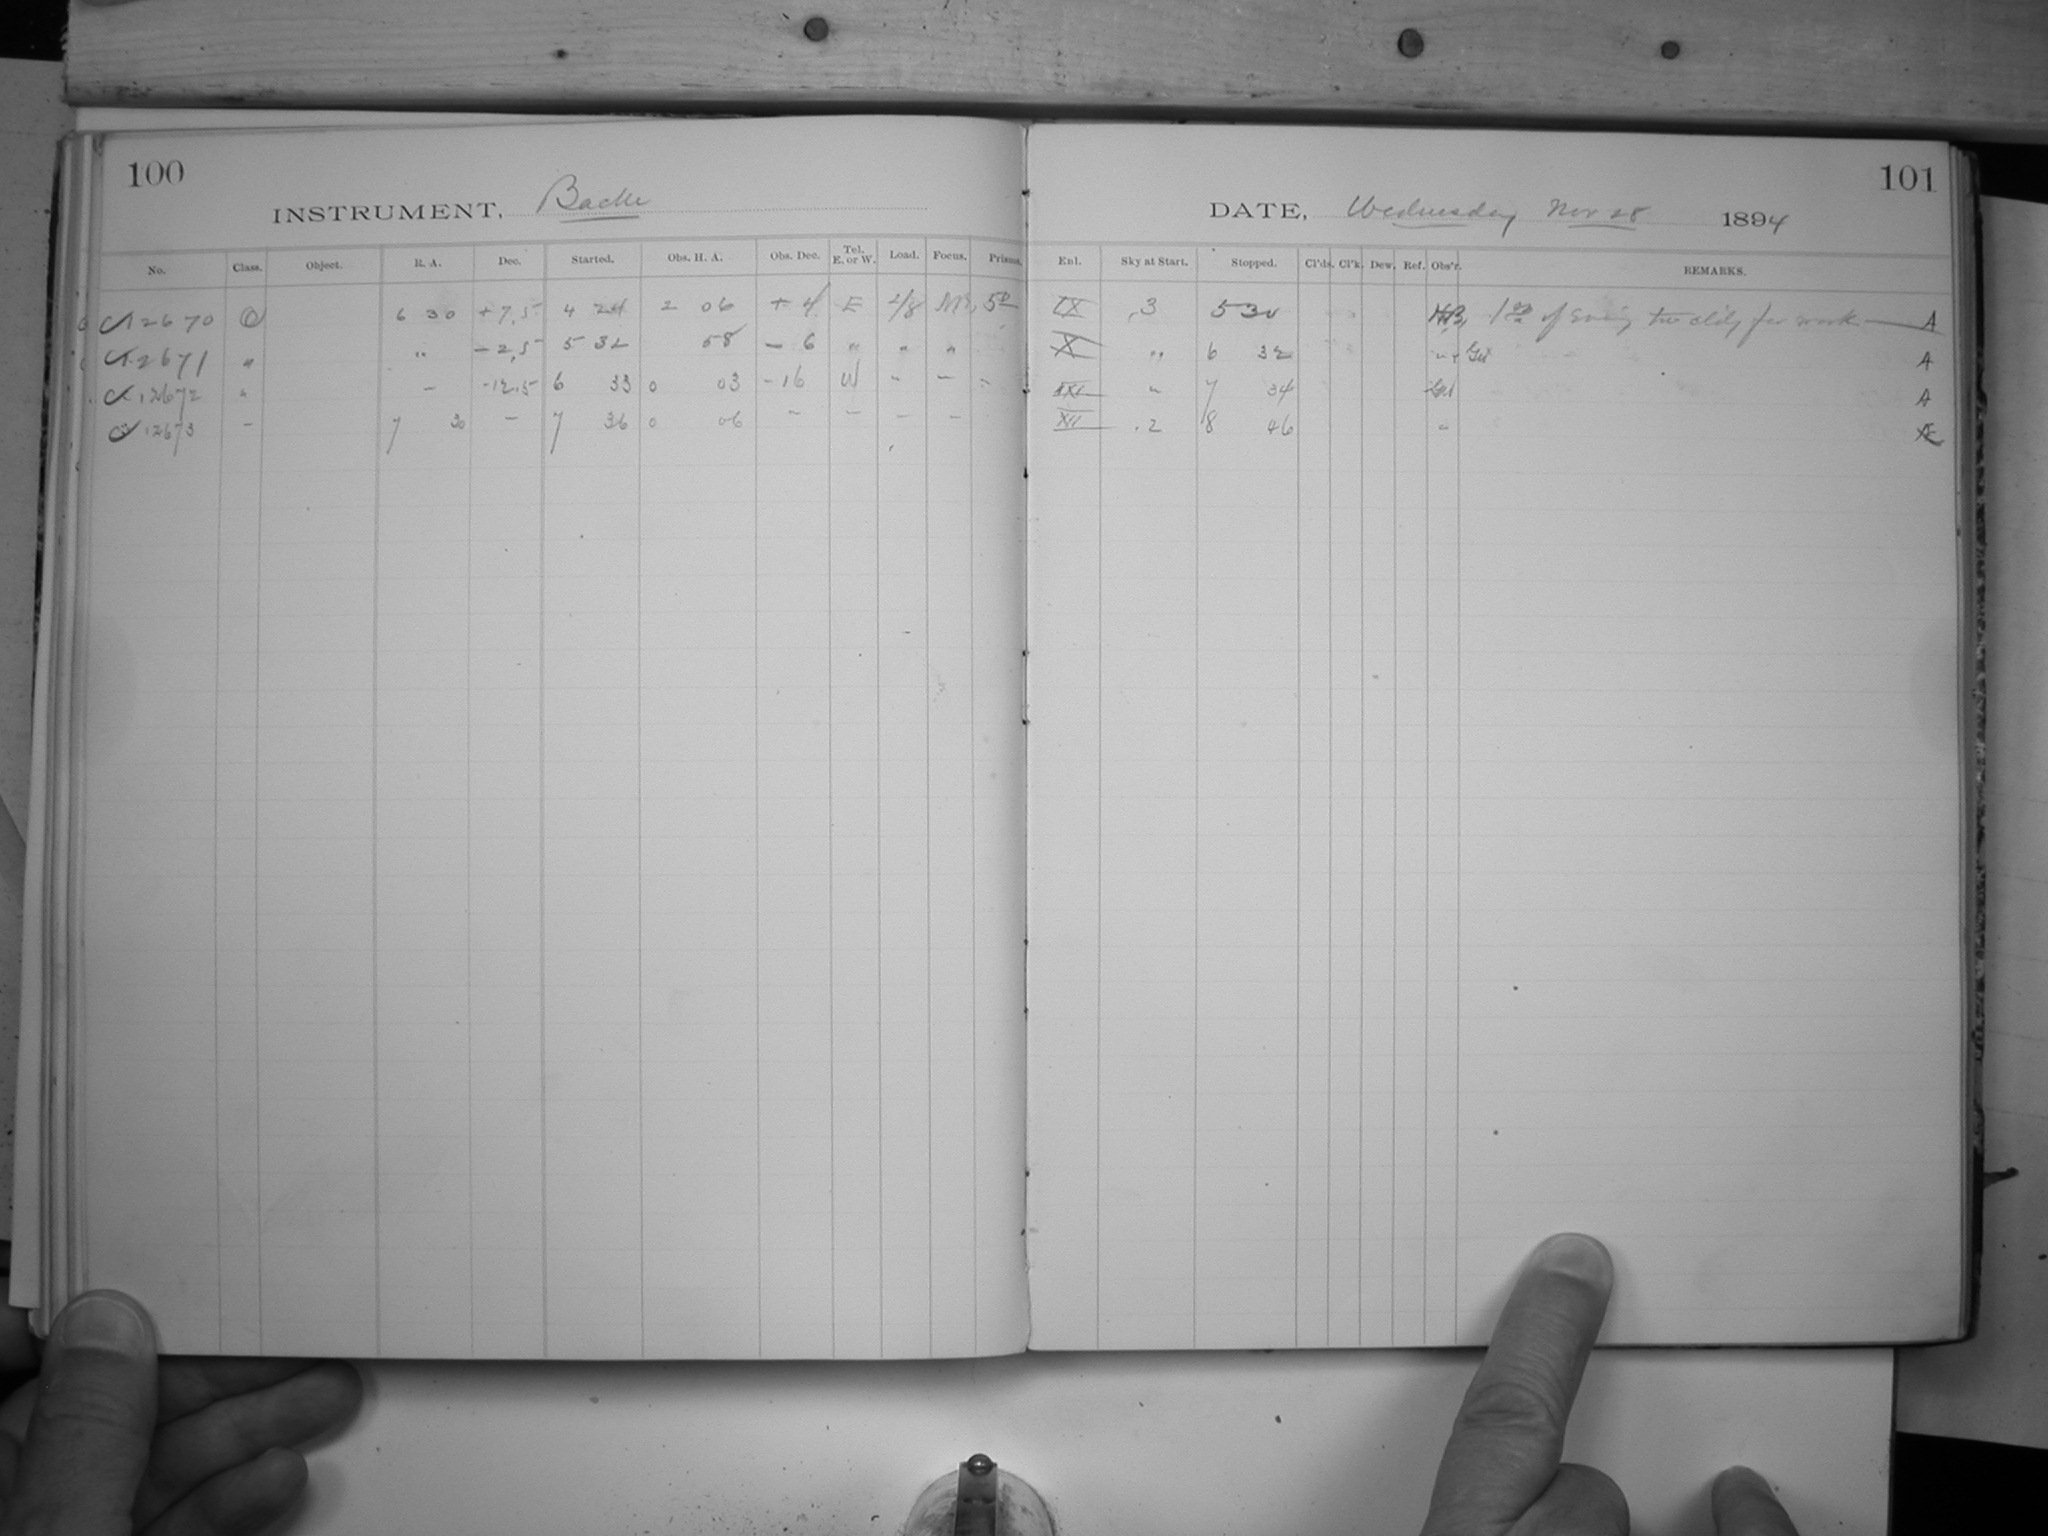 100
INSTRUMENT, Bache
No. Class. Object. R. A. Dec. Started. Obs. H. A. Obs. Dec. Tel. E. or W. Load. Focus. Prisms.
12670 6 30 +7,5 4 24 2 06 + 4 E 2/8
12671 " " -2,5 5 32 58 - 6 " " "
12672 " - -12,5 6 33 0 03 -16 W - -
12673 - 7 30 - 7 36 0 06 - - - -
101
DATE, Wednesday Nov 28 1894
Enl. Sky at Start. Stopped. Cl'ds. Cl'k. Dew. Ref. Obs'r. REMARKS.
IX ,3 5 30 of Evening too cldy for work A
X " 6 32 A
" 7 34 A
XII .2 8 46 "